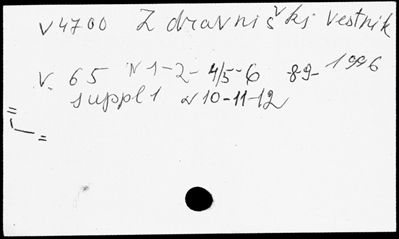 V4700 Zdravniški vestnik
V. 65 N 1-2-4/5-6 89-1996
suppl 1 N 10-11-12